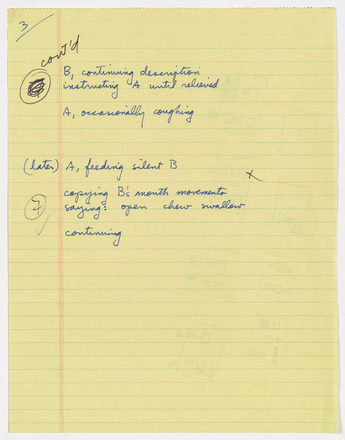 3
cont'd
B, continuing description
instructing A until relieved
A, occasionally coughing
(later) A, feeding silent B
x
copying B's mouth movements
7 saying: open chew swallow
continuing